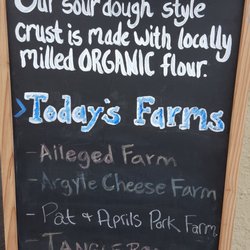 Our sourdough style
crust is made with locally
milled ORGANIC flour.
> Today's Farms
- Alleged Farm
- Argyle Cheese Farm
- Pat & Aprils Pork Farm
- TANGLE